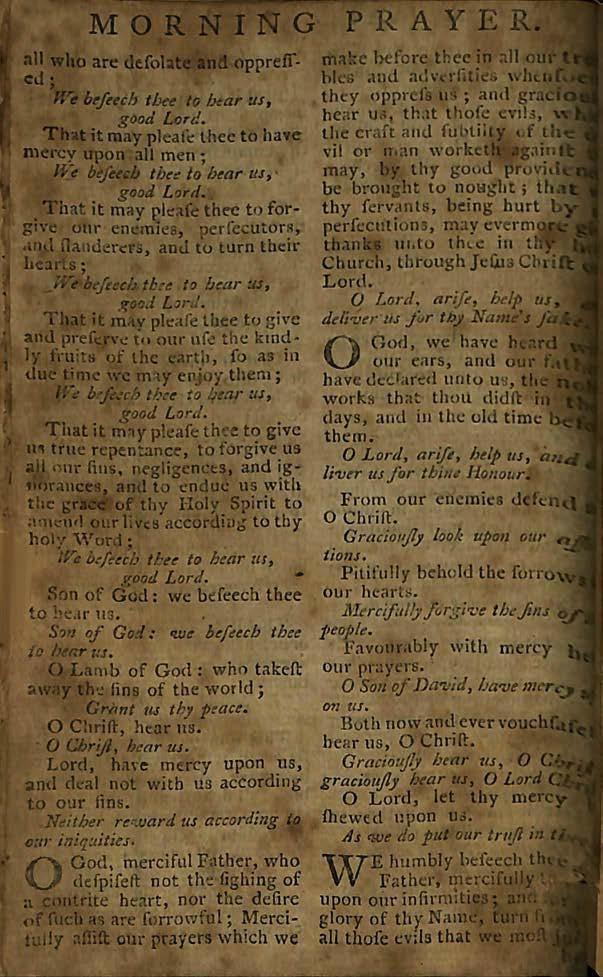 MORNING PRAYER.
all who are deſolate and oppreſſ-
ed;
We beſeech thee to hear us,
good Lord.
That it may pleaſe thee to have
mercy upon all men;
We beſeech thee to hear us,
good Lord.
That it may pleaſe thee to for-
give our enemies, perſecutors,
and ſlanderers, and to turn their
hearts;
We beſeech thee to hear us,
good Lord.
That it may pleaſe thee to give
and preſerve to our uſe the kind-
ly fruits of the earth, ſo as in
due time we may enjoy them;
We beſeech thee to hear us,
good Lord.
That it may pleaſe thee to give
us true repentance, to forgive us
all our ſins, negligences, and ig-
norances, and to endue us with
the grace of thy Holy Spirit to
amend our lives according to thy
holy Word;
We beſeech thee to hear us,
good Lord.
Son of God: we beſeech thee
to hear us.
Son of God: we beſeech thee
to hear us.
O Lamb of God: who takeſt
away the ſins of the world;
Grant us thy peace.
O Chriſt, hear us.
O Chriſt, hear us.
Lord, have mercy upon us,
and deal not with us according
to our ſins.
Neither reward us according to
our iniquities.
O God, merciful Father, who
deſpiſeſt not the ſighing of
a contrite heart, nor the deſire
of ſuch as are ſorrowful; Merci-
fully aſſiſt our prayers which we
make before thee in all our
bles and adverſities
they oppreſs us; and
hear us, that thoſe evils,
the craft and ſubtilty of the
vil or man worketh againſt
may, by thy good
be brought to nought; that
thy ſervants, being hurt by
perſecutions, may evermore
thanks unto thee in thy
Church, through Jeſus Chriſt
Lord.
O Lord, ariſe, help us,
deliver us for thy Name's ſake.
O God, we have heard
our ears, and our
have declared unto us, the
works that thou didſt in
days, and in the old time
them.
O Lord, ariſe, help us, and
liver us for thine Honour.
From our enemies defend
O Chriſt.
Graciouſly look upon our
tions.
Pitifully behold the ſorrows
our hearts.
Mercifully forgive the ſins of
people.
Favourably with mercy
our prayers.
O Son of David, have mercy
on us.
Both now and ever vouchſafe
hear us, O Chriſt.
Graciouſly hear us, O
graciouſly hear us, O Lord
O Lord, let thy mercy
ſhewed upon us.
As we do put our truſt in
WE humbly beſeech thee
Father, mercifully
upon our infirmities; and
glory of thy Name, turn
all thoſe evils that we moſt